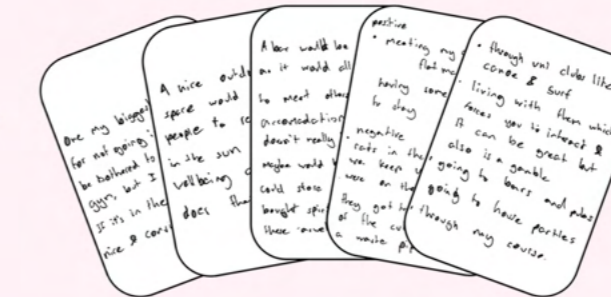 One my biggest
for not going i
be bothered to
gym, but I
if it's in the
nice &
A nice outd
space would
people to re
in the sun
wellbeing
does tha
A bar would be
as it would all
to meet others
accomodation
doesn't really
maybe would b
could store
bought spiri
these
positive
• meeting my
flatma
having some
to stay
• negative
rats in the
we keep
were on the
they got
of the cu
a waste pip
• through uni clubs like
canoe & surf
• living with them which
forces you to interact &
it can be great but
also is a gamble
• going to bars and pubs
• going to house parties
• through my course.